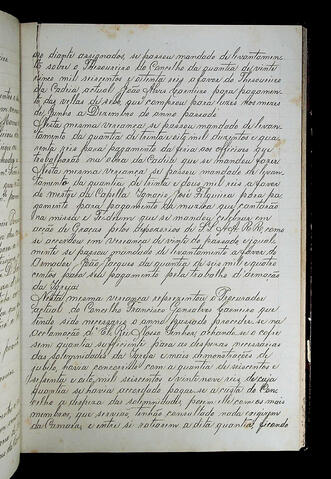 rio diante assignados, se passou mandado de levantamen-
to sobre o Thesoureiro do Concelho da quantia de vinte
cinco mil seiscentos e oitenta reis a favor do Thesoureiro
da Cadeia actual João Alves Carneiro para pagamen-
to das vellas de sebo, que comprou para luzes nos mezes
de Junho a Dezembro do anno passado
Nesta mesma vereança se passou mandado de levan-
tamento da quantia de trinta seis mil duzentos e qua-
renta reis para pagamento da feria aos officiaes que
trabalharão na obra da Cadeia que se mandou fazer
Nesta mesma vereança se passou mandado de levan-
tamento da quantia de trinta e dois mil reis a favor
do mestre da Capella Ignacio José Filgueiras para pa-
gamento para pagamento da muzica que cantarão
na missa e Tedeum que se mandou celebrar em
acção de Graças pelos desposorios de S.S. A.A. R.R. como
se accordou em vereança de vinte do passado e igual-
mente se passou mandado de levantamento a favor do
Armador João Jacques da quantia de seis mil e quatro
centos para seu pagamento pelo trabalho d'armação
da Igreja
Nesta mesma vereança reprezentou o Procurador
actual do Concelho Francisco Gonsalves Carneiro que
tendo sido necessario o anno passado proceder-se na
acclamação d'El Rei Nosso Senhor, achando-se o cofre
sem quantia sufficiente para as despezas necessarias
das solemnidades da Igreja e mais demonstrações de
jubilo, havia concorrido com a quantia de seiscentos e
setenta e oito mil seiscentos e vinte nove reis de cuja
quantia se havia accordado pagar-se a custa do Con-
celho a despeza das solemnidades, porem elle com os mais
membros, que servião, tenham consultado nada exigirem
da Camara, e entre si rateassem a dita quantia, ficando